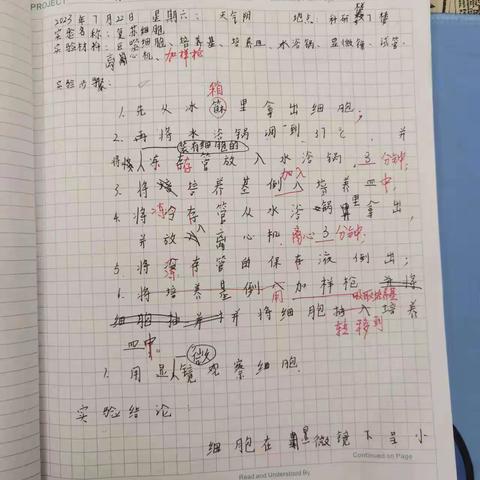 PROJECT
2023年7月22日 星期六: 天气阴 地点: 科研楼7楼
实验名称: 复苏细胞
实验材料: 细胞、培养基、培养皿、水浴锅、显微镜、试管、
离心机、加样枪
实验步骤:
箱
1. 先从冰里拿出细胞;
2. 再将水浴锅调到37℃, 并
装有细胞的
将冻存管放入水浴锅, 3分钟;
加入
3. 将培养基倒入培养皿中;
4. 将冻存管从水浴锅里拿出,
并放入离心机, 离心3分钟;
5. 将冻存管的保存液倒出;
6. 将培养基倒入用加样枪并将
吸取培养基
细胞抽并将细胞抽入培养
转移到
皿中。
微
7. 用显镜观察细胞.
实验结论:
细胞在显微镜下呈小
Continued on Page
Read and Understood By